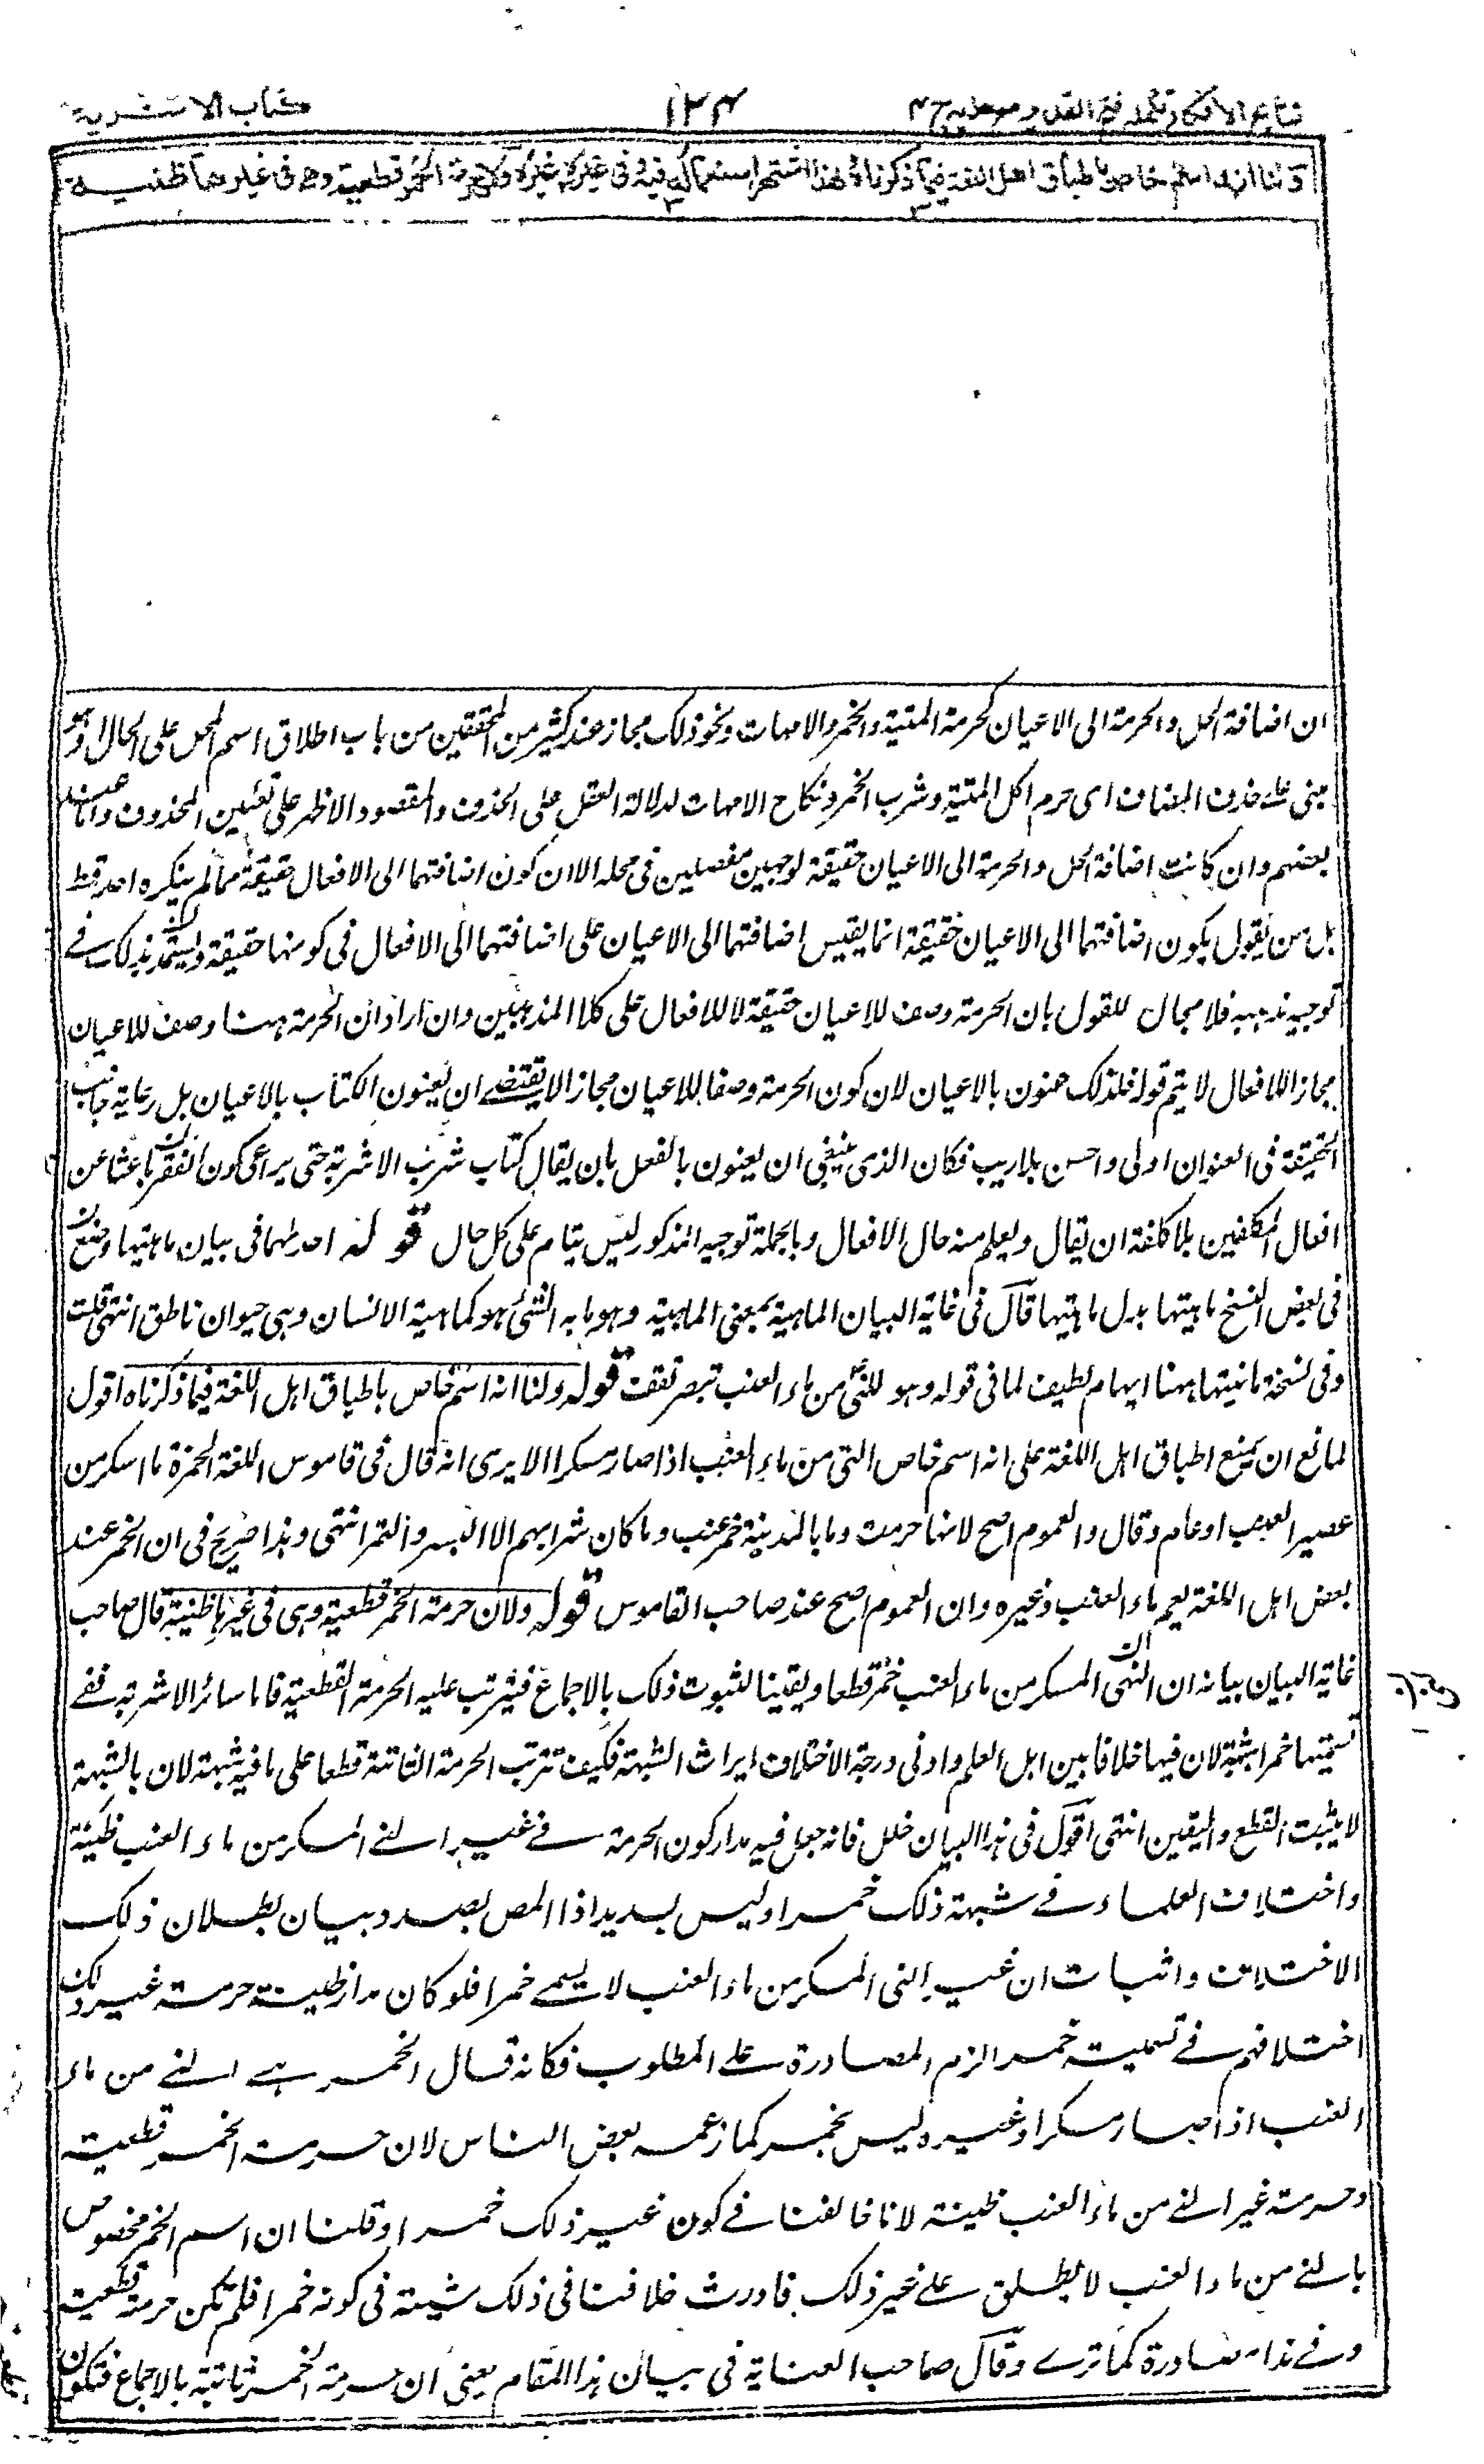 نتائج الافكار تكملہ فتح القدير مع ہدایہ ج ۴
۱۲۴
كتاب الاشربة
ولنا انه اسم خاص باطباق اهل اللغة فيما ذكرناه ولهذا اشتهر استعماله فيه وفي غيره غيره ولان حرمة الخمر قطعية وهي في غيرها ظنية
ان اضافة الحل والحرمة الى الاعيان كحرمة الميتة والخمر والامهات ونحو ذلك مجاز عند كثير من المحققين من باب اطلاق اسم المحل على الحال او هو
مبنى على حذف المضاف اى حرم اكل الميتة وشرب الخمر ونكاح الامهات لدلالة العقل على الحذف والمقصود الاظهر على تعيين المحذوف واما عند
بعضهم وان كانت اضافة الحل والحرمة الى الاعيان حقيقة لوجهين مفصلين فى محله الا ان كون اضافتهما الى الافعال حقيقة مما لم ينكره احد قط
بل من يقول بكون اضافتهما الى الاعيان حقيقة انما يقيس اضافتهما الى الاعيان على اضافتهما الى الافعال فى كونها حقيقة وليستمد بذلك فى
توجيه مذهبه فلا مجال للقول بان الحرمة وصف للاعيان حقيقة لا للافعال على كلا المذهبين وان اراد ان الحرمة ههنا وصف للاعيان
مجازا للافعال لا يتم قوله فلذلك عنون بالاعيان لان كون الحرمة وصفا للاعيان مجازا لا يقتضى ان يعنون الكتاب بالاعيان بل رعاية جانب
الحقيقة فى العنوان اولى واحسن بلا ريب فكان الذى ينبغى ان يعنون بالفعل بان يقال كتاب شرب الاشربة حتى يراعى كون الفقه باحثا عن
افعال المكلفين بلا كلفة ان يقال ويعلم منه حال الافعال وبالجملة توجيه المذكور ليس بتام على كل حال قوله احدها فى بيان ماهيتها وقع
فى بعض النسخ مائيتها بدل ماهيتها قال فى غاية البيان المائية بمعنى الماهية وهو ما به الشئ هو كماهية الانسان وهى حيوان ناطق انتهى قلت
وفى نسخة مائيتها ههنا ايهام لطيف لما فى قوله وهو للنئ من ماء العنب تبصر تقف قوله ولنا انه اسم خاص باطباق اهل اللغة فيما ذكرناه اقول
لمانع ان يمنع اطباق اهل اللغة على انه اسم خاص التى من ماء العنب اذا صار مسكرا الا يرى انه قال فى قاموس اللغة الخمرة ما اسكر من
عصير العنب او عام وقال والعموم اصح لانها حرمت وما بالمدينة خمر عنب وما كان شرابهم الا البسر والتمر انتهى وهذا صريح فى ان الخمر عند
بعض اهل اللغة يعم ماء العنب وغيره وان العموم اصح عند صاحب القاموس قوله ولان حرمة الخمر قطعية وهى فى غيرها ظنية قال صاحب
غاية البيان بيانه ان النى المسكر من ماء العنب خمر قطعا ويقينا لثبوت ذلك بالاجماع فيترتب عليه الحرمة القطعية فاما سائر الاشربة ففى
تسميتها خمرا شبهة لان فيها خلافا بين اهل العلم وادنى درجة الاختلاف ايراث الشبهة فكيف تترتب الحرمة الثابتة قطعا على ما فيه شبهة لان بالشبهة
لا يثبت القطع واليقين انتهى اقول فى هذا البيان خلل فانه جعل فيه مدار كون الحرمة فى غير النى المسكر من ماء العنب ظنية
واختلاف العلماء فى شبهة ذلك خمرا وليس بسديد اذ المص بصدد بيان بطلان ذلك
الاختلاف واثبات ان غير النى المسكر من ماء العنب لا يسمى خمرا فلو كان مدار ظنية حرمة غير ذلك
اختلافهم فى تسميته خمرا لزم المصادرة على المطلوب فكانه قال الخمر هى النى من ماء
العنب اذا صار مسكرا وغيره ليس بخمر كما زعمه بعض الناس لان حرمة الخمر قطعية
وحرمة غير النى من ماء العنب ظنية لانا خالفنا فى كون غير ذلك خمرا وقلنا ان اسم الخمر مخصوص
بالنى من ماء العنب لا يطلق على غير ذلك فاورث خلافنا فى ذلك شبهة فى كونه خمرا فلم تكن حرمته قطعية
وفى هذا مصادرة كما ترى وقال صاحب العناية فى بيان هذا المقام يعنى ان حرمة الخمر ثابتة بالاجماع فتكون